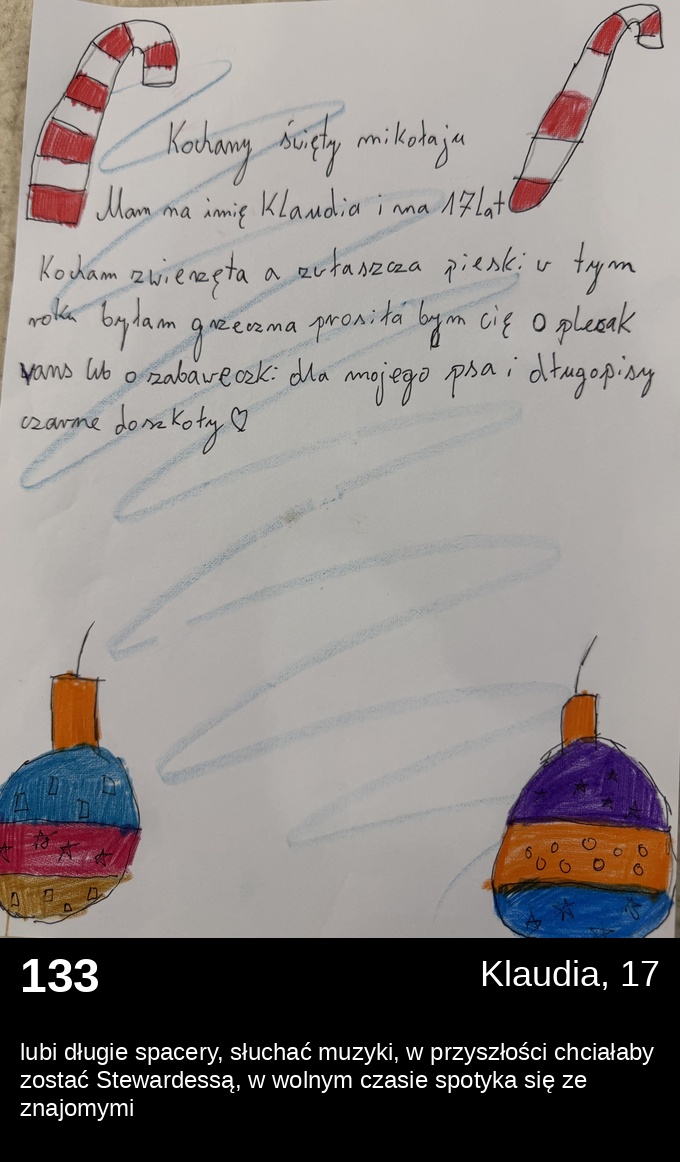 Kochany święty mikołaju
Mam na imię Klaudia i ma 17lat
Kocham zwierzęta a zwłaszcza pieski w tym
roku byłam grzeczna prosiła bym cię o plecak
vans lub o zabaweczki dla mojego psa i długopisy
czarne doszkoły ♡
133
Klaudia, 17
lubi długie spacery, słuchać muzyki, w przyszłości chciałaby
zostać Stewardessą, w wolnym czasie spotyka się ze
znajomymi